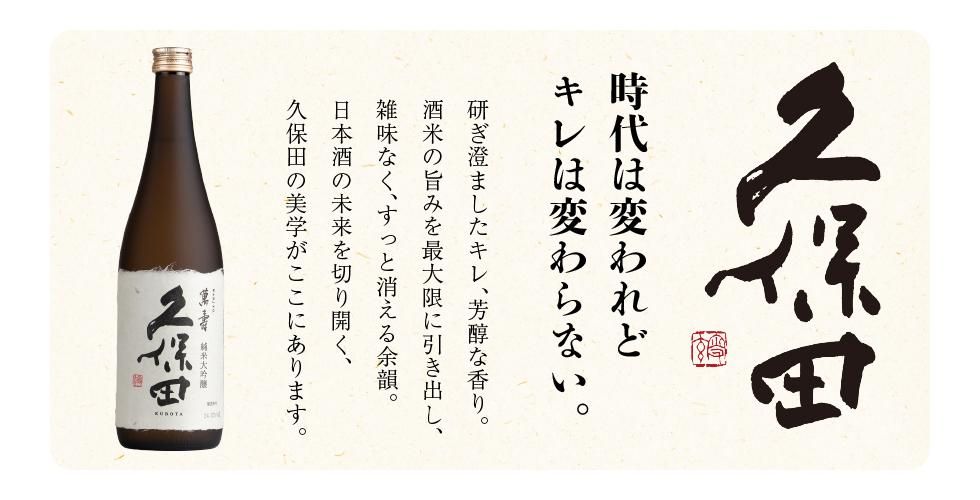 久保田
時代は変われど
キレは変わらない。
研ぎ澄ましたキレ、芳醇な香り。
酒米の旨みを最大限に引き出し、
雑味なく、すっと消える余韻。
日本酒の未来を切り開く、
久保田の美学がここにあります。
萬寿
純米大吟醸
久保田
KUBOTA